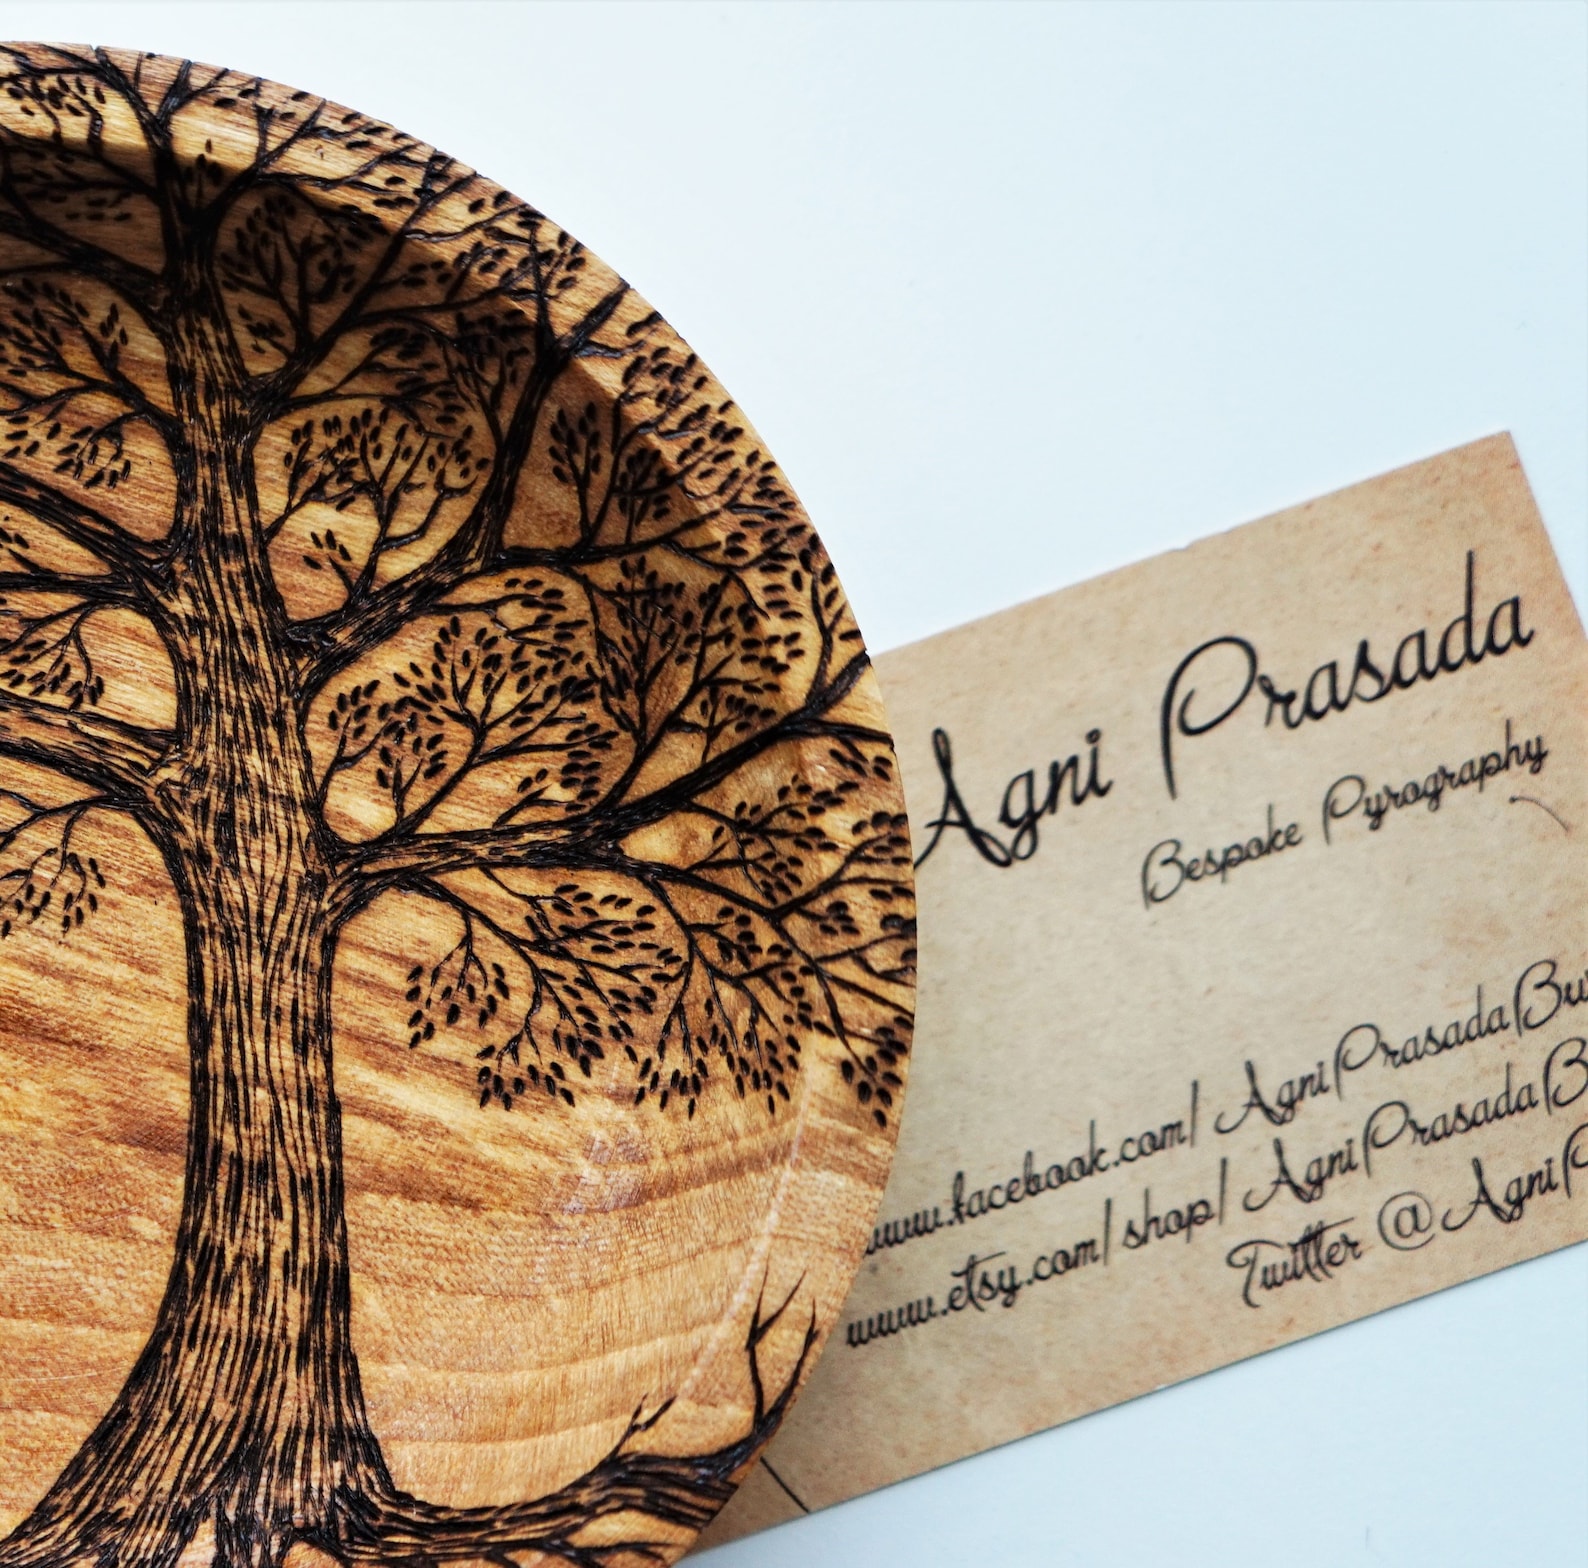 Agni Prasada
Bespoke Pyrography
www.facebook.com/AgniPrasadaBu
www.etsy.com/shop/AgniPrasadaB
Twitter @AgniP